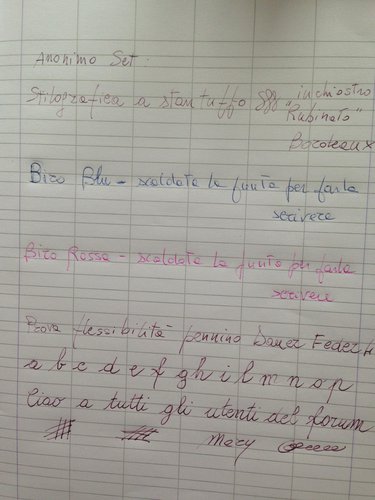 Anonimo Set.
Stilografica a stantuffo "inchiostro
"Rubinato"
Bordeaux
Biro Blu - scaldata la punta per farla
scrivere
Biro Rossa - scaldata la punta per farla
scrivere
Prova flessibilità pennino Bauer Feder
a b c d e f g h i l m n o p
Ciao a tutti gli utenti del forum
Mary